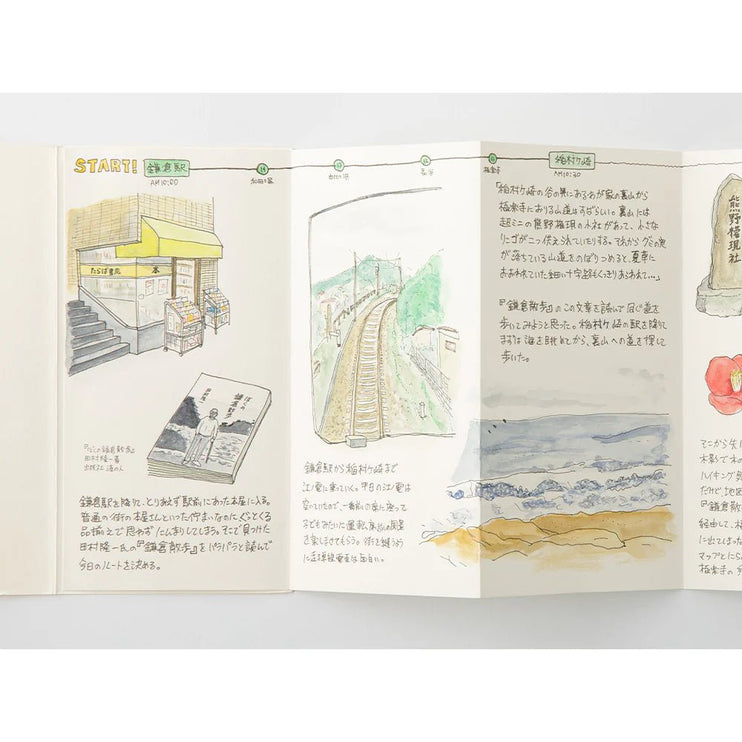 START!
鎌倉駅
AM10:00
和田塚
由比ヶ浜
長谷
極楽寺
稲村ヶ崎
AM10:30
たらば書房 本
ぼくの
鎌倉散歩
田村隆一
『ぼくの鎌倉散歩』
田村隆一著
出版社 港の人
鎌倉駅を降りて、とりあえず駅前にあった本屋に入る。
普通の街の本屋さんといった佇まいなのに、ぐっとくる
品揃えで思わずにんまりしてしまう。そこで見つけた
田村隆一氏の『鎌倉散歩』をパラパラと読んで
今日のルートを決める。
鎌倉駅から稲村ヶ崎まで
江ノ電に乗っていく。平日の江ノ電は
空いていたので、一番前の席に座って
子どもみたいに運転席前の風景
を楽しませてもらう。街を縫うよう
に走る路線電車は面白い。
「稲村ヶ崎の谷の奥にあるわが家の裏山から
極楽寺におりる山道はすばらしい。裏山には
超ミニの熊野権現の小社があって、小さな
リンゴが二つ供えられていたりする。それからグミの実
が落ちている山道をのぼりつめると、夏草に
おおわれていた細い十字路もくっきりあらわれて…」
『鎌倉散歩』のこの文章を読んで同じ道を
歩いてみようと思った。稲村ヶ崎の駅を降りて
まずは海を眺めてから、裏山への道を探して
歩いた。
熊野権現社
そこから矢
木彫で木の
ハイキング気
だけで地図
『鎌倉散
経由して、本
に出てしまった
マップとにら
極楽寺の